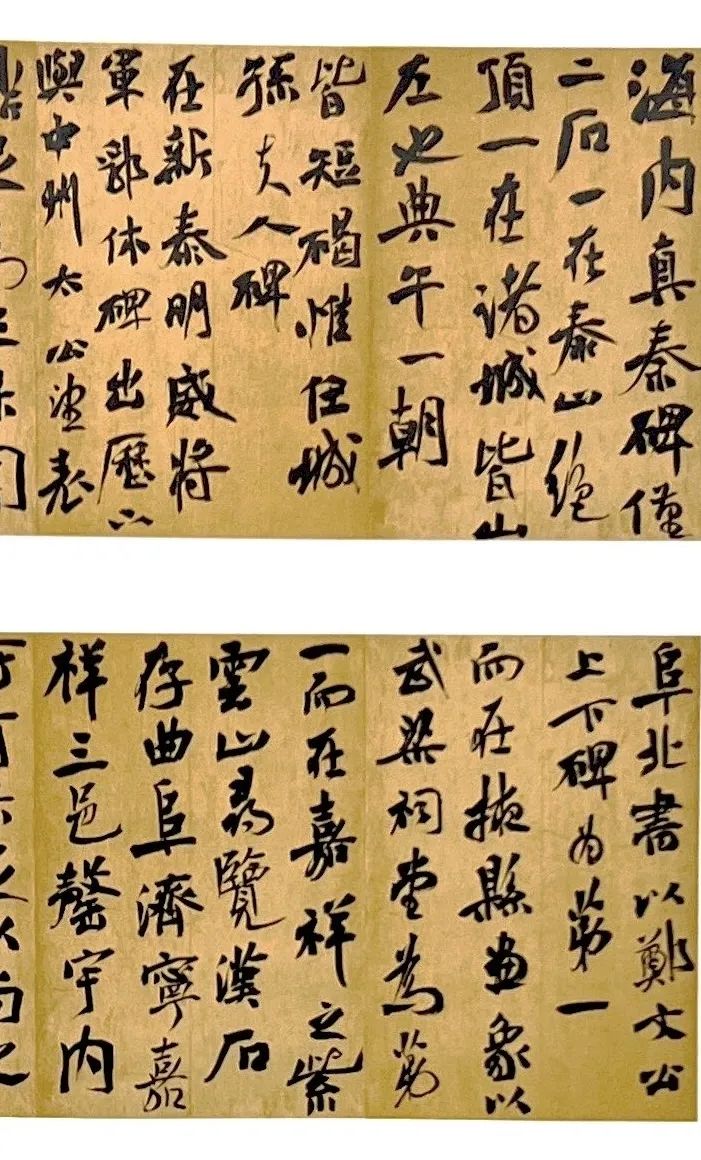 海内真秦碑僅
二石一在泰山绝
頂一在诸城皆山
左也典午一朝
皆短碣惟任城
孫夫人碑
在新泰明威將
軍郛休碑出歷以
與中州太公望表
阜北書以鄭文公
上下碑为第一
而在掖縣畫象以
武梁祠堂為第
一而在嘉祥之紫
雲山尋覽漢石
存曲阜濟寧嘉
祥三邑罄宇内